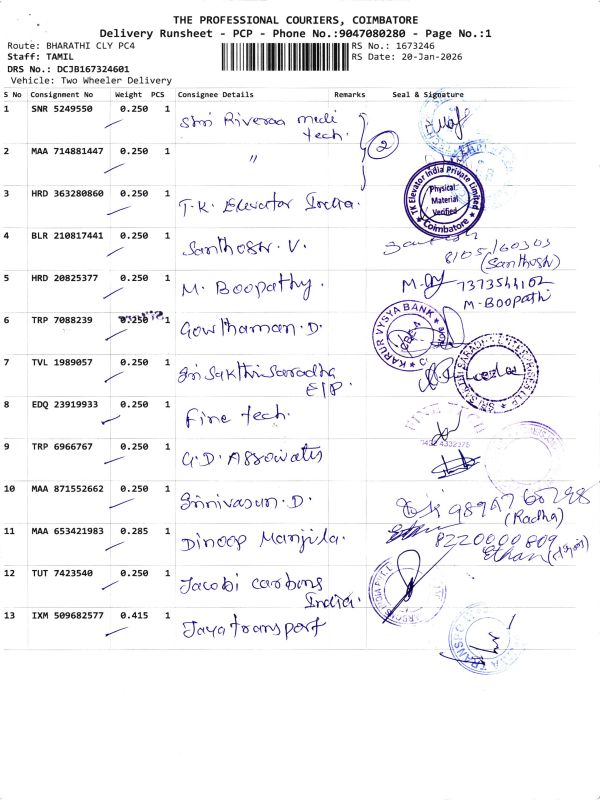 THE PROFESSIONAL COURIERS, COIMBATORE
Delivery Runsheet - PCP - Phone No.:9047080280 - Page No.:1
Route: BHARATHI CLY PC4 RS No.: 1673246
Staff: TAMIL RS Date: 20-Jan-2026
DRS No.: DCJB167324601
Vehicle: Two Wheeler Delivery
S No Consignment No Weight PCS Consignee Details Remarks Seal & Signature
1 SNR 5249550 0.250 1 Shri Riveraa medi
tech. 2
2 MAA 714881447 0.250 1 "
3 HRD 363280860 0.250 1 T.K. Elevator India.
TK Elevator India Private Limited
Physical
Material
Verified
Coimbatore
4 BLR 210817441 0.250 1 Santhosh. V.
(Santhosh)
5 HRD 20825377 0.250 1 M. Boopathy.
M-Boopathi
6 TRP 7088239 0.250 1 Gowthaman. D.
KARUR VYSYA BANK
7 TVL 1989057 0.250 1 Sri Sakthi Saradha
E/P.
8 EDQ 23919933 0.250 1 Fine tech.
FINE TECH
9 TRP 6966767 0.250 1 G.D. Associates
10 MAA 871552662 0.250 1 Srinivasan. D.
(Radha)
11 MAA 653421983 0.285 1 Dinoop Manjila.
8220000809
Ethan
12 TUT 7423540 0.250 1 Jacobi carbons
India.
13 IXM 509682577 0.415 1 Jaya transport